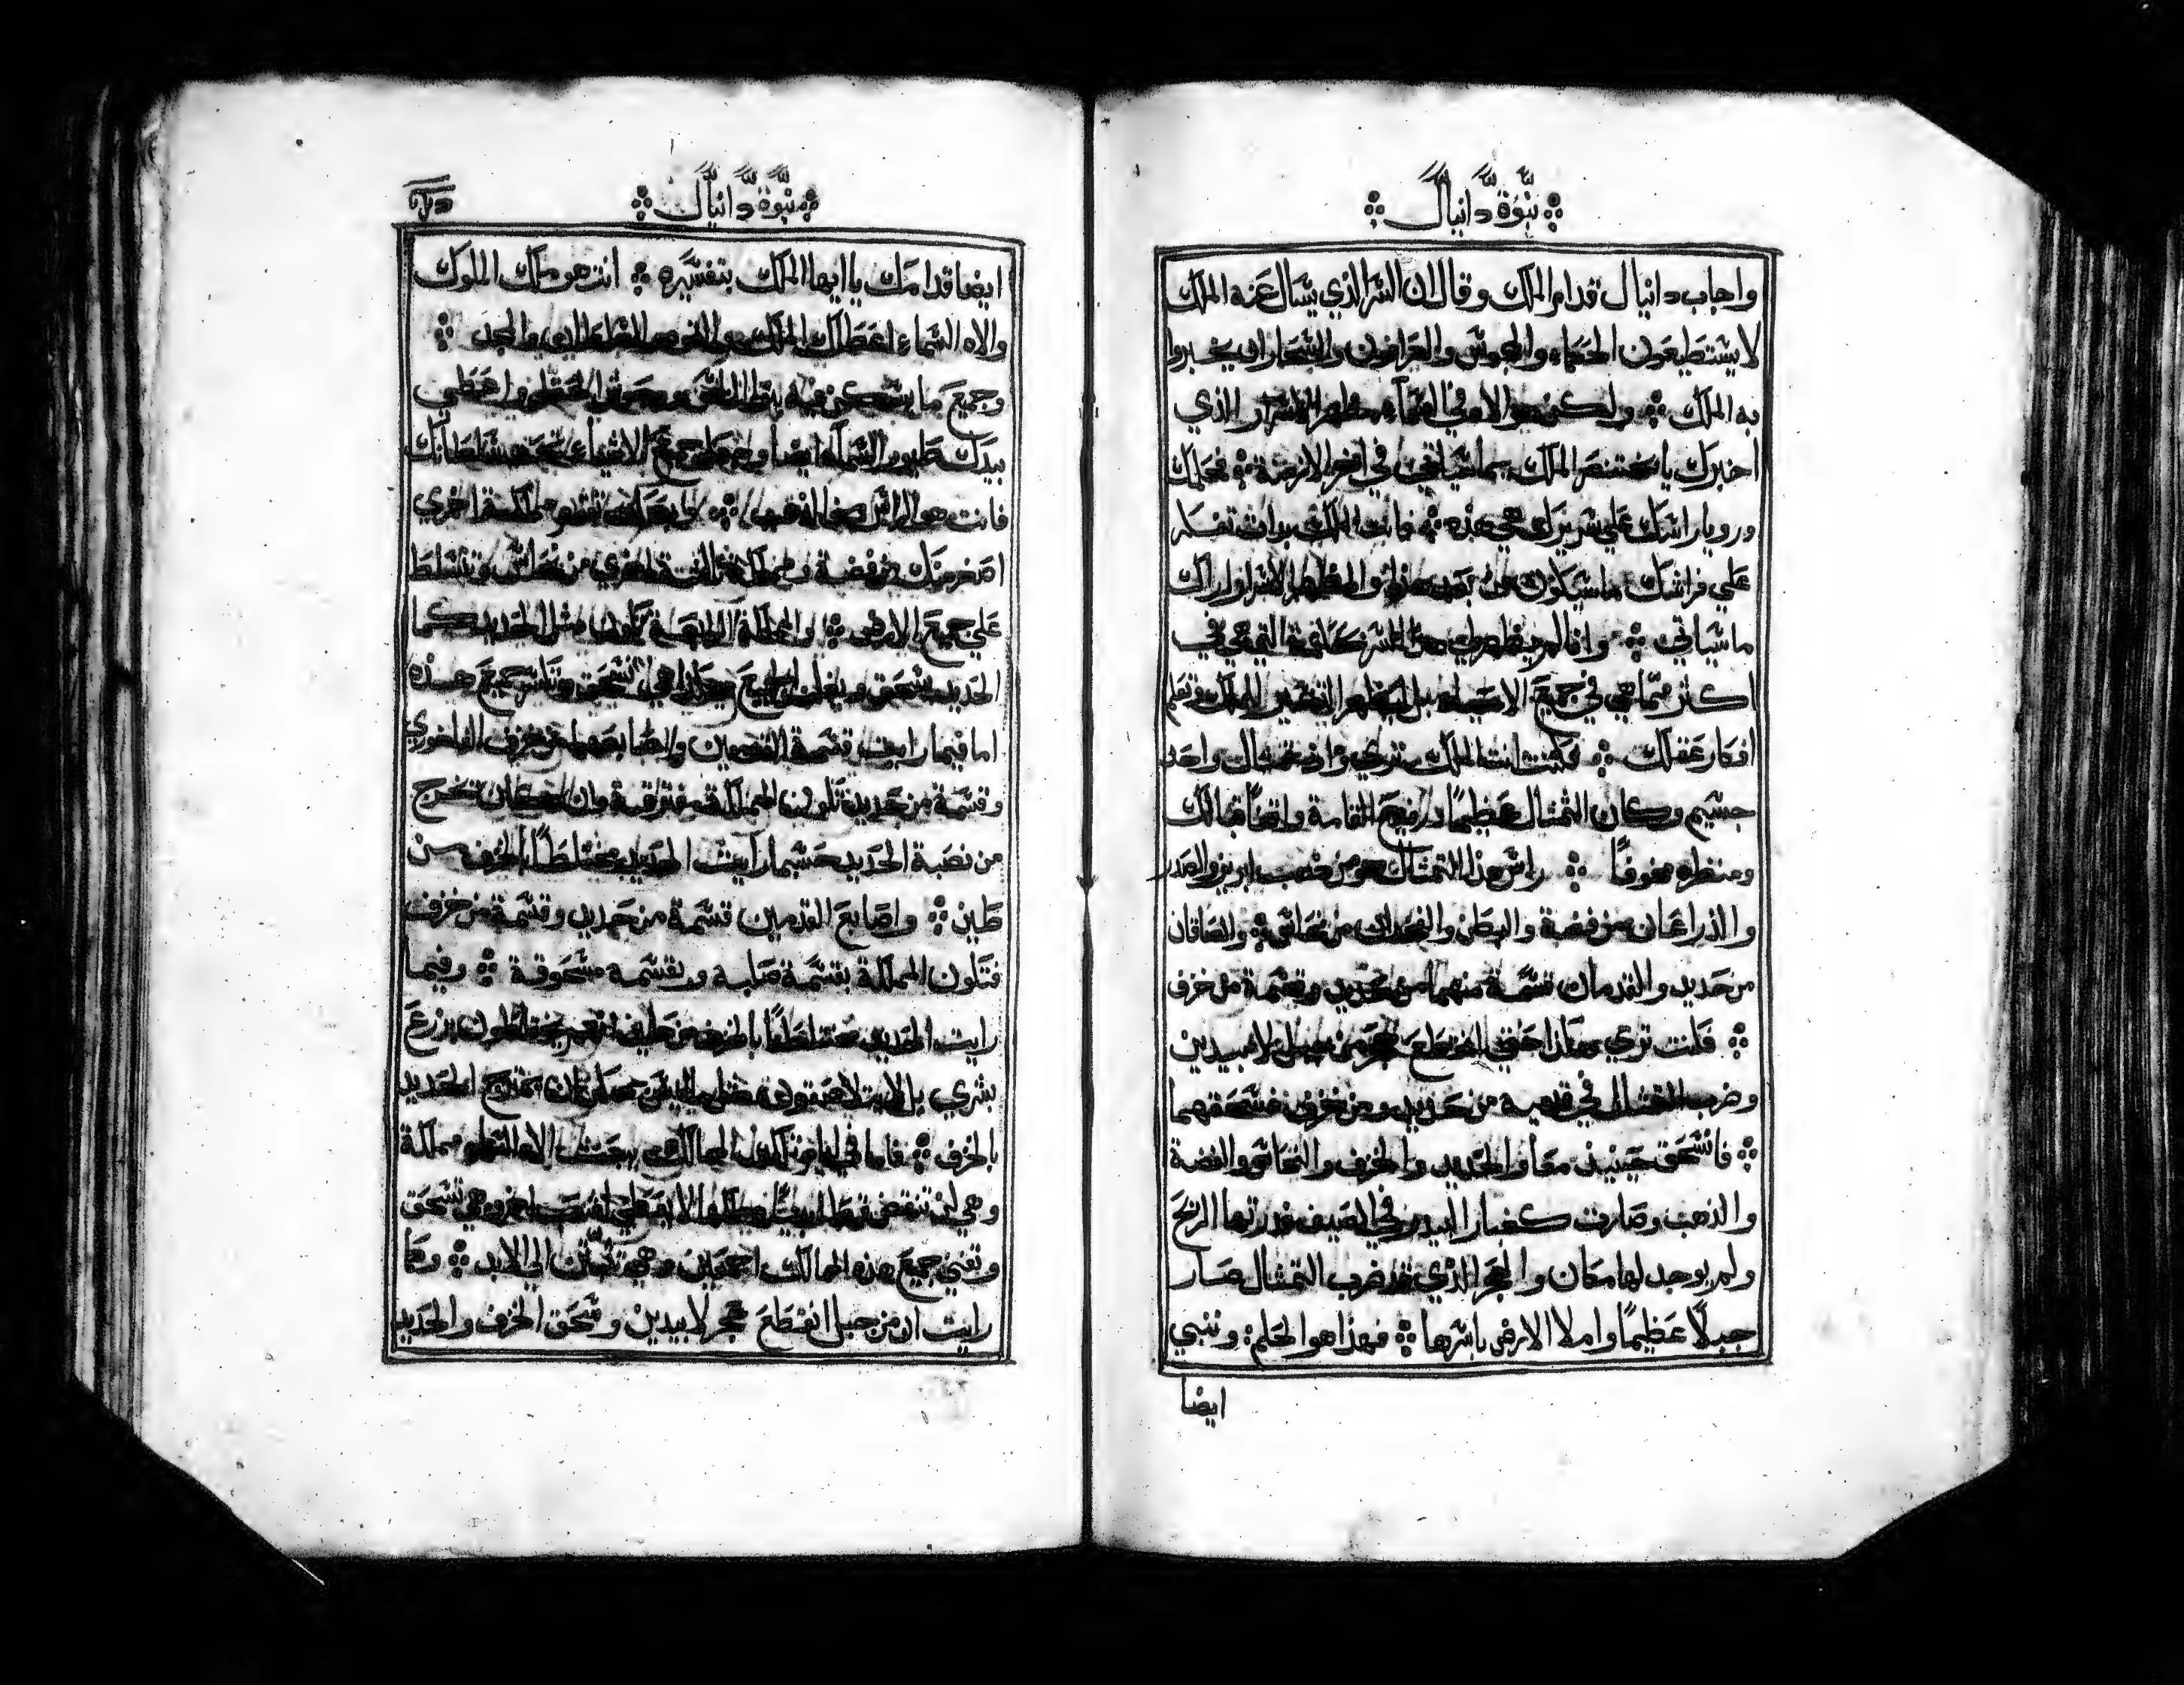 نبوة دانيال
واجاب دانيال قدام الملك وقال ان السر الذي يسال عنه الملك
لا يستطيعون الحكماء والمجوس والعرافون والسحار ان يخبروا
به الملك ولكن هو الاه في السماء مظهر الاسرار الذي
اخبرك يا بختنصر الملك بما سياتي في اخر الازمنة فحلمك
ورويا راسك علي سريرك هي هذه فانت الملك بدات تفتكر
علي فراشك ما سيكون من بعد هذا والمظهر الاسرار اراك
ما سياتي وانا لم يظهر لي هذا السر كانني التي هي في
اكثر مما هي في جميع الاحياء بل ليظهر التفسير للملك وتعلم
افكار عقلك فكنت انت الملك تري واذ تمثال واحد
جسيم وكان التمثال عظيمًا ورفيع القامة واقفًا قبالك
ومنظره مخوفًا راس هذا التمثال هو من ذهب ابريز والصدر
والذراعان من فضة والبطن والفخدان من نحاس والساقان
من حديد والقدمان قسمة منهما من حديد وقسمة من خزف
فكنت تري هكذا حتي انقطع حجر من جبل لا بيدين
وضرب التمثال في قدميه من حديد ومن خزف فسحقهما
فانسحق حينيذ معا الحديد والخزف والنحاس والفضة
والذهب وصارت كغبار البيدر في الصيف فذرتها الريح
ولم يوجد لها مكان والحجر الذي قد ضرب التمثال صار
جبلًا عظيمًا واملا الارض باسرها فهذا هو الحلم وننبي
ايضا
نبوة دانيال
ايضا قدامك يا ايها الملك بتفسيره انت هو ملك الملوك
والاه السماء اعطاك الملك والقوة والسلطان والمجد
وجميع ما يسكن فيه بنو الناس ووحوش الحقل واعطي
بيدك طيور السماء ايضا وجعل جميع الاشياء تحت سلطانك
فانت هو الراس من الذهب وبعدك تقوم مملكة اخري
اصغر منك من فضة ومملكة ثالثة اخري من نحاس وتتسلط
علي جميع الارض والمملكة الرابعة تكون مثل الحديد كما
الحديد يسحق ويغلب الجميع هكذا هي تسحق وتكسر جميع هذه
اما فيما رايت قسمة القدمين والاصابع من خزف الفاخوري
وقسمة من حديد تكون المملكة مفترقة وان كان تخرج
من نصبة الحديد حسبما رايت الحديد مختلطًا بالخزف من
طين واصابع القدمين قسمة من حديد وقسمة من خزف
فتكون المملكة بقسمة صلبة وبقسمة مسحوقة وفيما
رايت الحديد مختلطًا بالخزف من طين انهم يختلطون بزرع
بشري بل لا يتلاصقون مثلما ليس يمكن ان يمتزج الحديد
بالخزف فاما في ايام تلك الممالك يبعث الاه السماء مملكة
وهي لن تنتقض قط وملكها لا يعطي لشعب اخر وهي تسحق
وتفني جميع هذه الممالك اجمعين وهي تثبت الي الابد وكما
رايت ان من جبل انقطع حجر لا بيدين وسحق الخزف والحديد